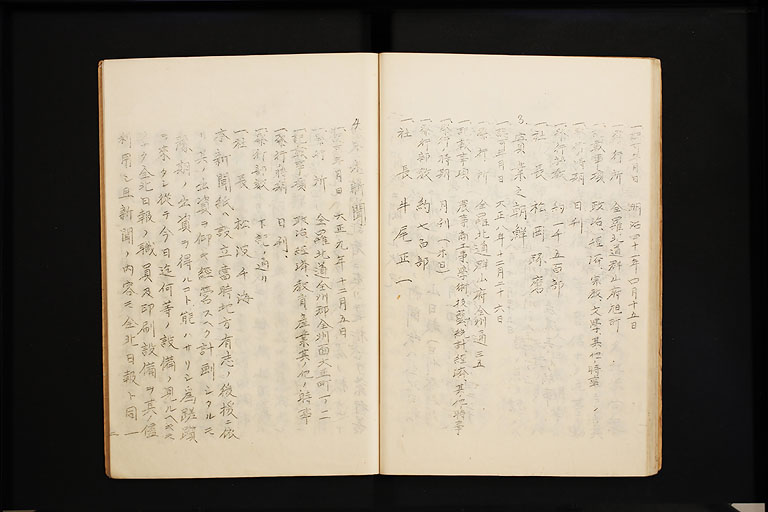 一、認可年月日 明治四十一年四月十五日
一、発行所 全羅北道群山府旭町
一、記載事項 政治、経済、宗教、文学、其他ノ時事
一、発行時期 日刊
一、発行部数 約千五百部
一、社長 松岡琢磨
3. 実業之朝鮮
一、認可年月日 大正八年十二月二十六日
一、発行所 全羅北道群山府全州通三五
一、記載事項 農事商工事、学術技芸、統計経済、其他時事
一、発行時期 月刊
一、発行部数 約七百部
一、社長 牛尾正一
4.
一、認可年月日 大正元年十二月五日
一、発行所 全羅北道全州郡全州面大正町
一、記載事項 政治経済、教育産業其ノ他ノ時事
一、発行時期 日刊、
一、発行部数 下記ノ通リ
一、社長 松波千海
本新聞紙ハ設立当時地方有志ノ後援ニ依
リ其ノ出資ヲ仰キ経営スヘク計画シタルモ
予期ノ出資ヲ得ルコト能ハサリシ為蹉跌
ヲ来タシ従テ今日迄何等設備ノ見ルヘキモノ
ナク全北日報ノ職員及印刷設備ヲ其ノ儘
利用シ且新聞ノ内容モ全北日報ト同一